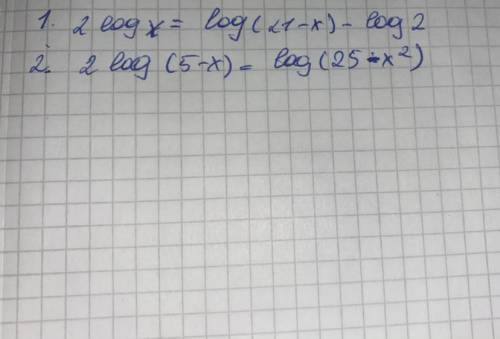 1. 2 log x = log(21-x) - log 2
2. 2 log (5-x) = log(25-x²)